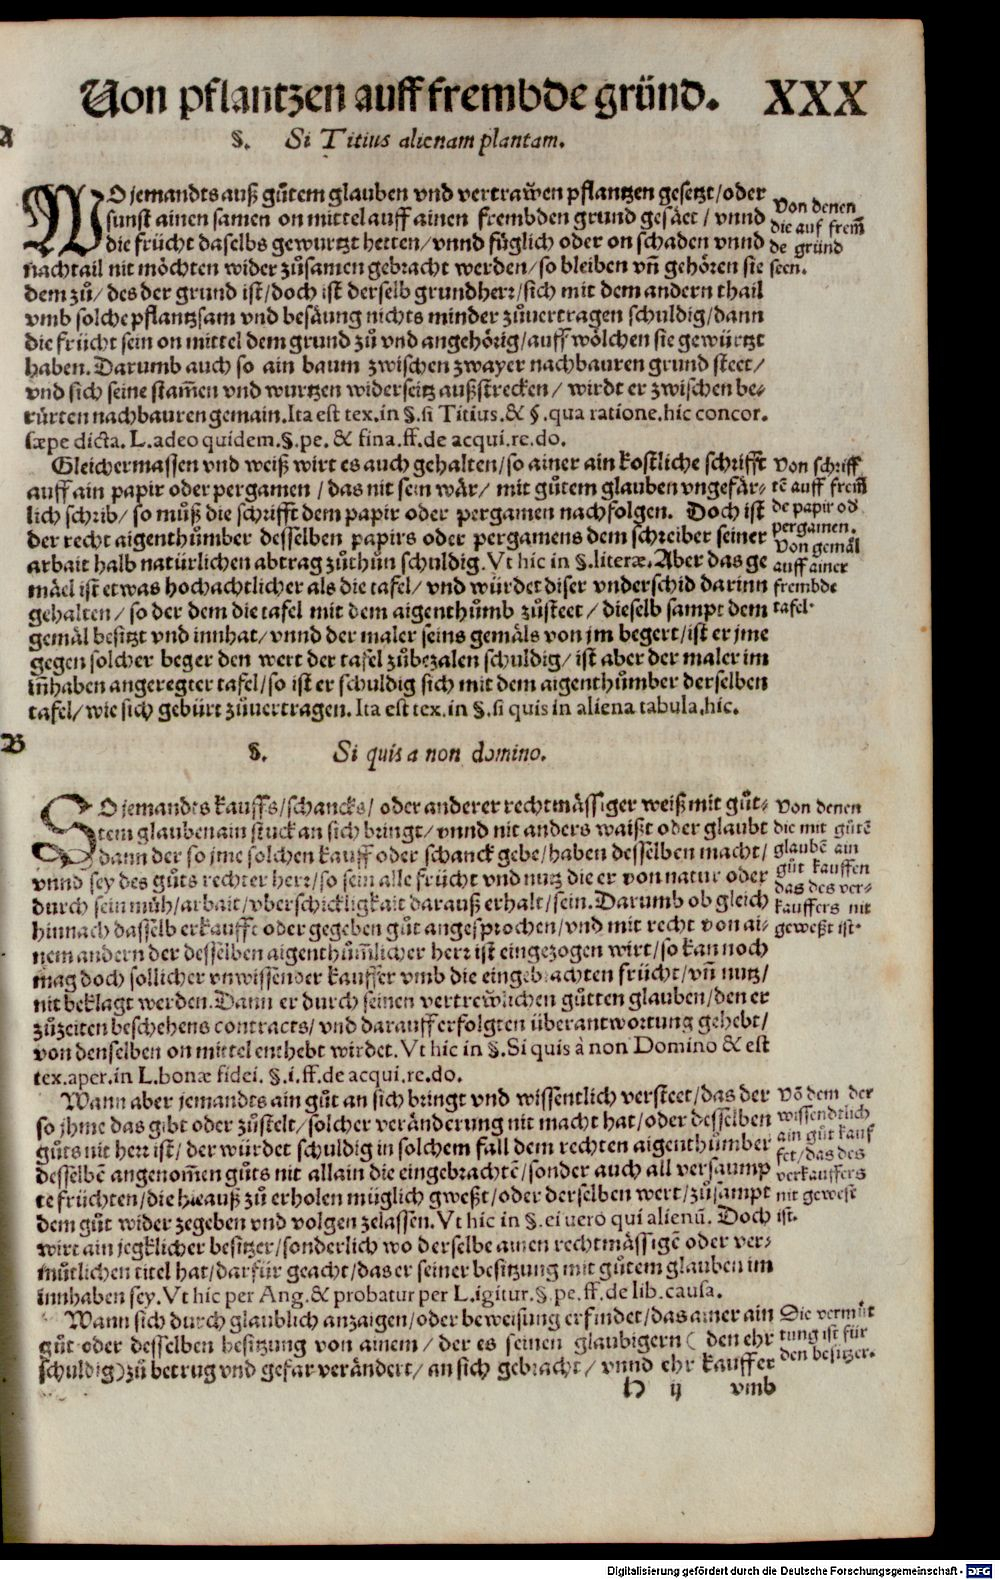 Von pflantzen auff frembde gründ. XXX
A
§. Si Titius alienam plantam.
WO jemandts auß gůtem glauben vnd vertraẅen pflantzen gesetzt/oder
sunst ainen samen on mittel auff ainen frembden grund gesäet/ vnnd
die frücht daselbs gewurtzt hetten/vnnd füglich oder on schaden vnnd
nachtail nit möchten wider zůsamen gebracht werden/so bleiben vñ gehören sie
dem zů/ des der grund ist/doch ist derselb grundherr/sich mit dem andern thail
vmb solche pflantzsam vnd besäung nichts minder zůuertragen schuldig/dann
die frücht sein on mittel dem grund zů vnd angehörig/auff wölchen sie gewürtzt
haben. Darumb auch so ain baum zwischen zwayer nachbauren grund steet/
vnd sich seine stam̃en vnd wurtzen widerseitz außstrecken/ wirdt er zwischen be-
rürten nachbauren gemain. Ita est tex. in §. si Titius. & §. qua ratione. hic concor.
sæpe dicta. L. adeo quidem. §. pe. & fina. ff. de acqui. re. do.
Von denen
die auf frem̃
de gründ
seen.
Gleichermassen vnd weiß wirt es auch gehalten/so ainer ain kostliche schrifft
auff ain papir oder pergamen /das nit sein wär/ mit gůtem glauben vngefär-
lich schrib/ so můß die schrifft dem papir oder pergamen nachfolgen. Doch ist
der recht aigenthůmber desselben papirs oder pergamens dem schreiber seiner
arbait halb natürlichen abtrag zůthůn schuldig. Vt hic in §. literæ. Aber das ge
mäel ist etwas hochachtlicher als die tafel/ vnd würdet diser vnderschid darinn
gehalten/ so der dem die tafel mit dem aigenthůmb zůsteet/ dieselb sampt dem
gemäl besitzt vnd innhat/vnnd der maler seins gemäls von jm begert/ist er jme
gegen solcher beger den wert der tafel zůbezalen schuldig/ ist aber der maler im
iñhaben angeregter tafel/so ist er schuldig sich mit dem aigenthůmber derselben
tafel/wie sich gebürt zůuertragen. Ita est tex. in §. si quis in aliena tabula. hic.
Von schriff
tẽ auff frem̃
de papir od
pergamen.
Von gemäl
auff ainer
frembde
tafel.
B
§. Si quis a non domino.
SO jemandts kauffs/schancks/ oder anderer rechtmässiger weiß mit gůt-
tem glauben ain stuck an sich bringt/ vnnd nit anders waißt oder glaubt
dann der so jme solchen kauff oder schanck gebe/haben desselben macht/
vnnd sey des gůts rechter herr/so sein alle frücht vnd nutz die er von natur oder
durch sein müh/arbait/vberschickligkait darauß erhalt/sein. Darumb ob gleich
hinnach dasselb erkaufft oder gegeben gůt angesprochen/vnd mit recht von ai-
nem andern der desselben aigenthüm̃licher herr ist eingezogen wirt/so kan noch
mag doch sollicher vnwissender kauffer vmb die eingebrachten frücht/vñ nutz/
nit beklagt werden. Dann er durch seinen vertreẅlichen gůtten glauben/den er
zůzeiten beschehens contracts/ vnd darauff erfolgten überantwortung gehebt/
von denselben on mittel enthebt wirdet. Vt hic in §. Si quis à non Domino & est
tex. aper. in L. bonæ fidei. §. i. ff. de acqui. re. do.
Von denen
die mit gůtẽ
glaubẽ ain
gůt kauffen
das des ver-
kauffers nit
geweßt ist.
Wann aber jemandts ain gůt an sich bringt vnd wissentlich versteet/das der
so jhme das gibt oder zůstelt/solcher veränderung nit macht hat/oder desselben
gůts nit herr ist/ der würdet schuldig in solchem fall dem rechten aigenthůmber
desselbẽ angenom̃en gůts nit allain die eingebrachtẽ/sonder auch all versaump
te früchten/die hierauß zů erholen müglich gweßt/oder derselben wert/zůsampt
dem gůt wider zegeben vnd volgen zelassen. Vt hic in §. ei uero qui alienũ. Doch
wirt ain jegklicher besitzer/sonderlich wo derselbe ainen rechtmässigẽ oder ver-
můtlichen titel hat/darfür geacht/das er seiner besitzung mit gůtem glauben im
innhaben sey. Vt hic per Ang. & probatur per L. igitur. §. pe. ff. de lib. causa.
Võ dem der
wissendtlich
ain gůt kauf
fet/das des
verkauffers
nit gewesẽ
ist.
Wann sich durch glaublich anzaigen/oder beweisung erfindet/das ainer ain
gůt oder desselben besitzung von ainem/ der es seinen glaubigern ( den ehr
schuldig) zů betrug vnd gefar verändert/ an sich gebracht/ vnnd ehr kauffer
Die vermůt
tung ist für
den besitzer.
H ij vmb
Digitalisierung gefördert durch die Deutsche Forschungsgemeinschaft - DFG